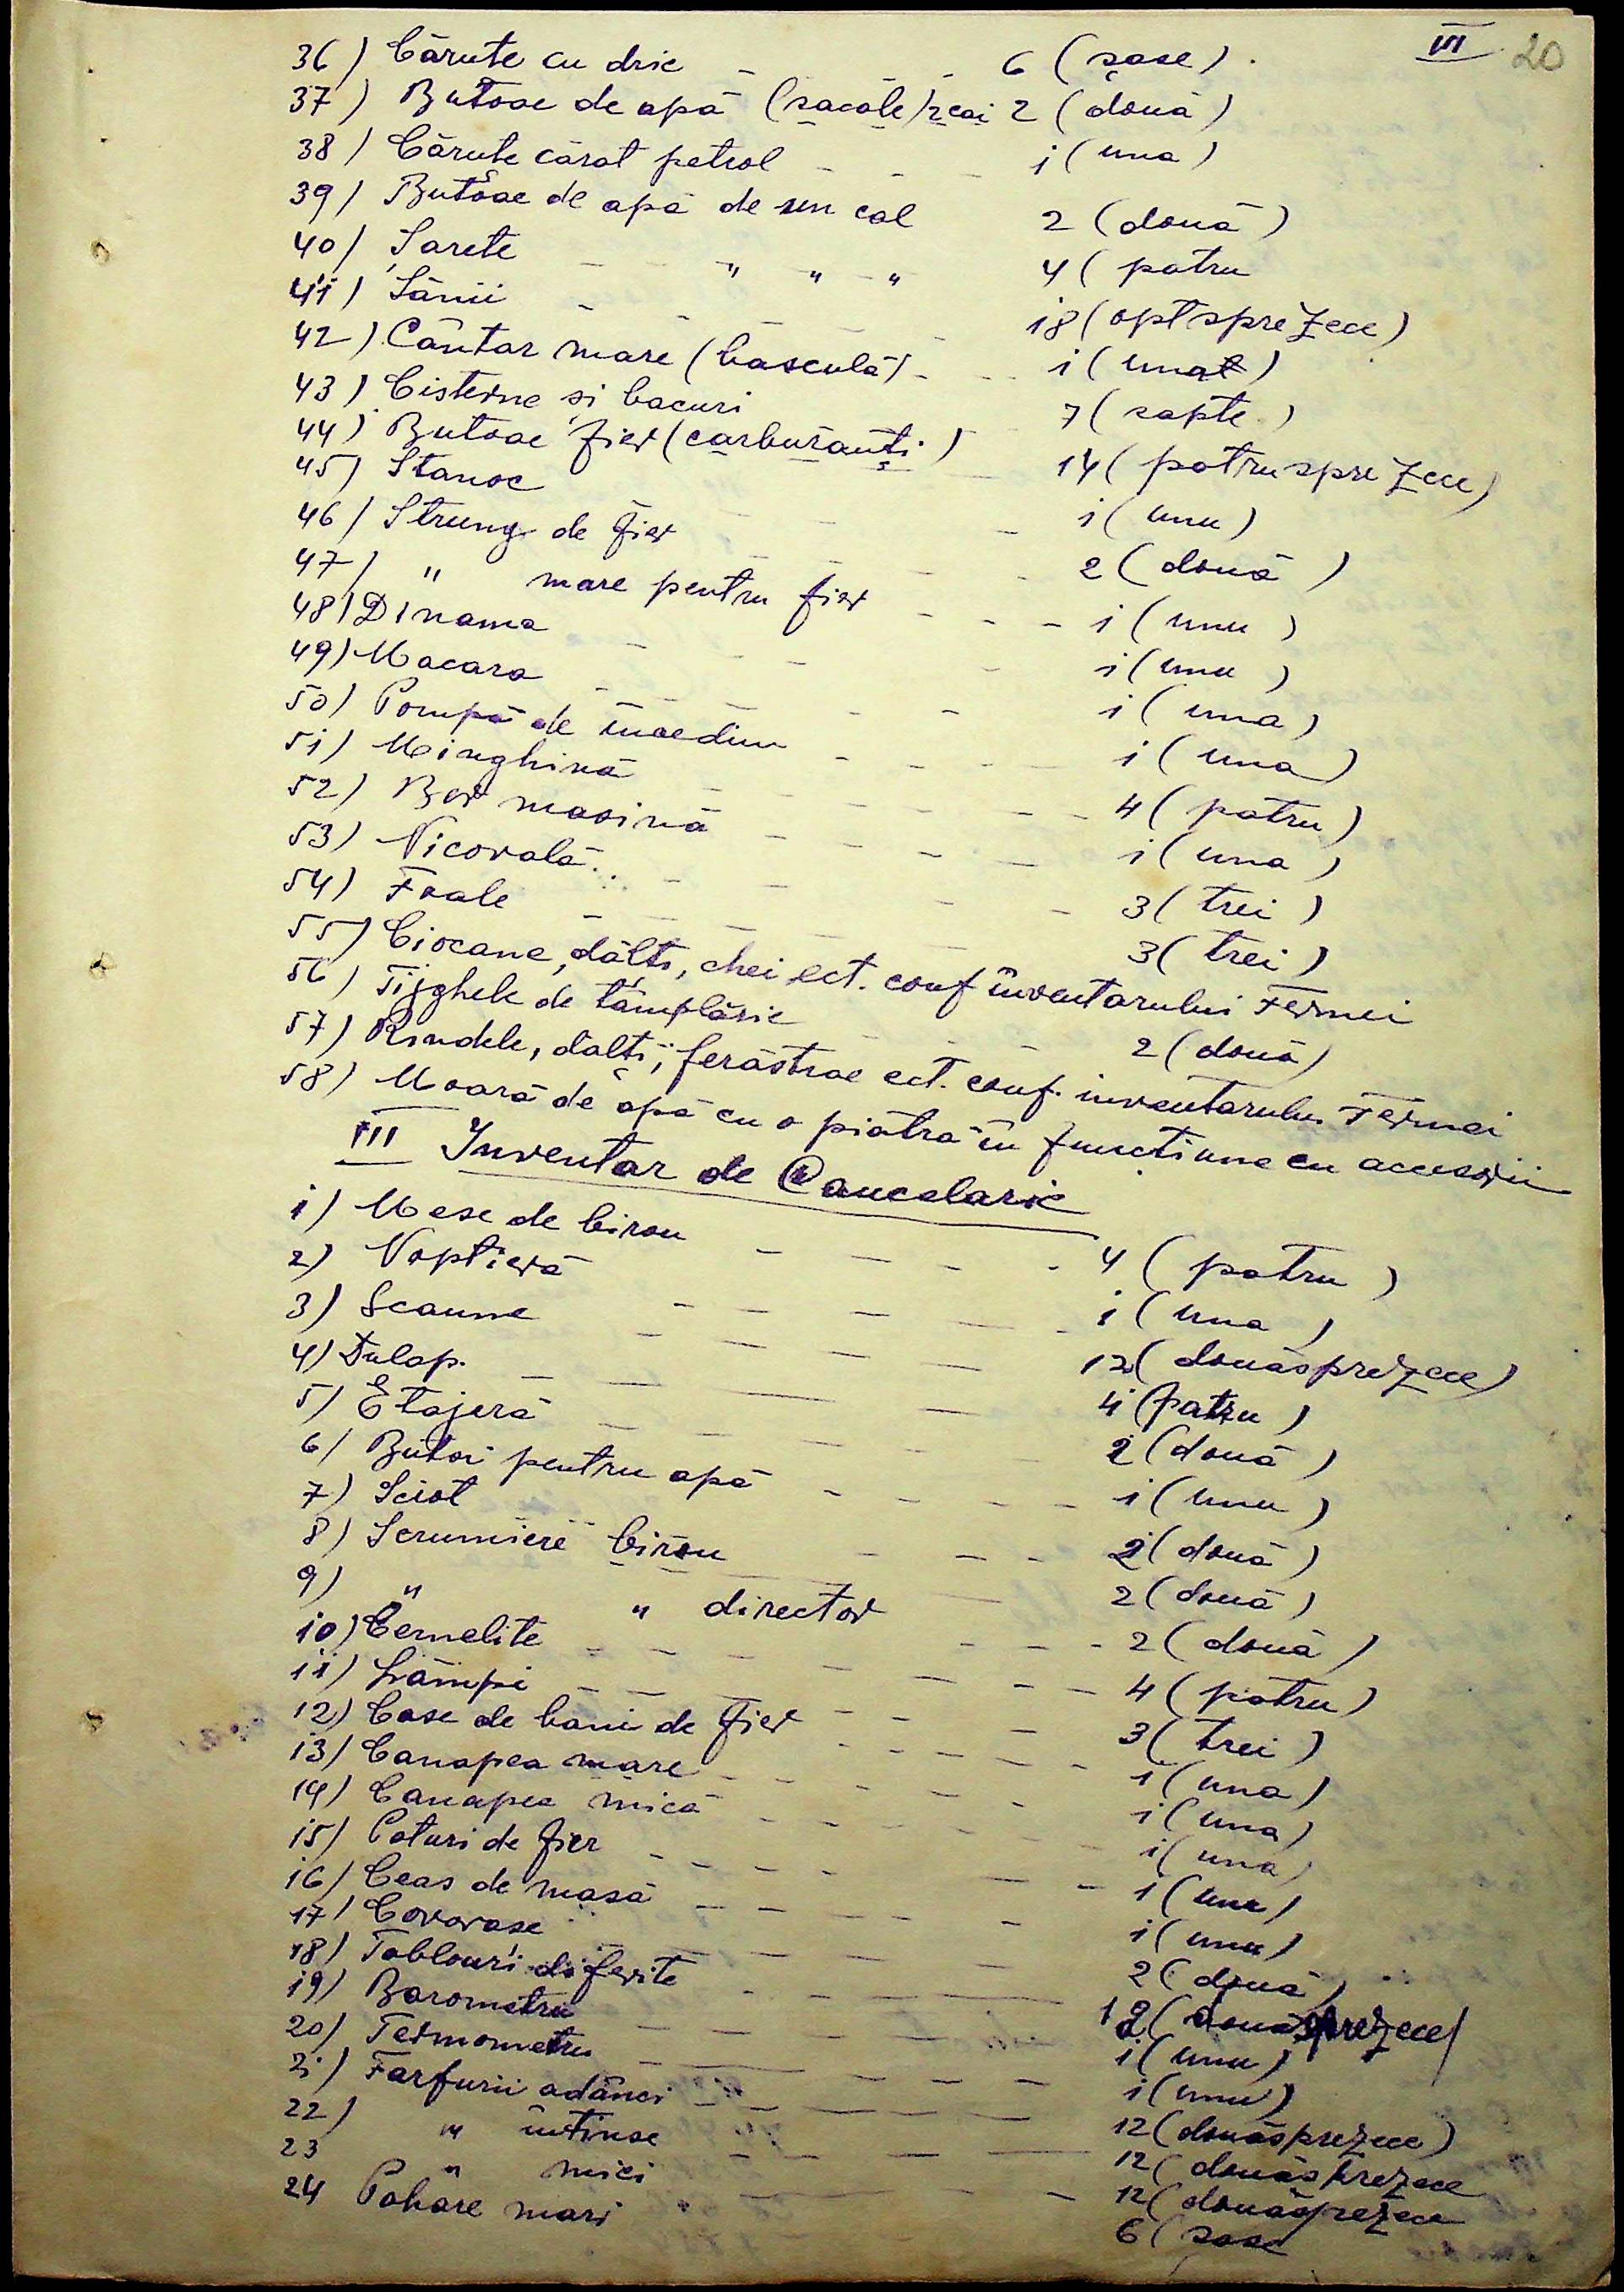 III 20
36) Cărute cu dric - - - 6 (șase).
37) Butoae de apă (sacale) 2 cai 2 (două)
38) Căruțe cărat petrol - - - 1 (una)
39) Butoae de apă de un cal 2 (două)
40) Șarete - - " " " 4 (patru
41) Sănii - - - - - 18 (optsprezece)
42) Cântar mare (basculă) - - 1 (unat)
43) Cisterne și bacuri 7 (sapte)
44) Butoae fier (carburanți) - 14 (patrusprezece)
45) Stanoc - - - 1 (unu)
46) Strung de fier - - - - 2 (două)
47) " mare pentru fier - - - 1 (unu)
48) Dinama - - - - 1 (unu)
49) Macara - - - - 1 (una)
50) Pompă de - - - 1 (una)
51) Minghină - - - - 4 (patru)
52) Bor masină - - - - 1 (una)
53) Nicovală - - - - 3 (trei)
54) Foale - - - - 3 (trei)
55) Ciocane, dălți, chei ect. conf inventarului Fermei
56) Tijghele de tâmplărie - - - 2 (două)
57) Rindele, dălți, ferăstrae ect. conf. inventarului Fermei
58) Moară de apă cu o piatră în functiune cu accesorii
III Inventar de Cancelarie
1) Mese de birou - - - - 4 (patru)
2) Noptieră - - - - 1 (una)
3) Scaune - - - - 12 (douăsprezece)
4) Dulap. - - - - 4 (patru)
5) Etajeră - - - - 2 (două)
6) Butoi pentru apă - - - - 1 (unu)
7) Sciot - - - 2 (două)
8) Scrumiere birou - 2 (două)
9) " " director - - - 2 (două)
10) Cernelite - - - - - 4 (patru)
11) Lămpi - - - - - 3 (trei)
12) Case de bani de fier - - - - 1 (una)
13) Canapea mare - - - - 1 (una)
14) Canapea mică - - - - 1 (una)
15) Paturi de fier - - - - 1 (unu)
16) Ceas de masă - - - - 1 (unu)
17) Covorase - - - - 2 (două)
18) Tablouri diferite - - - 12 (douăsprezece)
19) Barometru - - - - 1 (unu)
20) Termometru - - - - 1 (unu)
21) Farfurii adânci - - - - 12 (douăsprezece)
22) " întinse - - - 12 (douăsprezece
23 " mici - - - - 12 (douăsprezece
24 Pahare mari 6 (sase